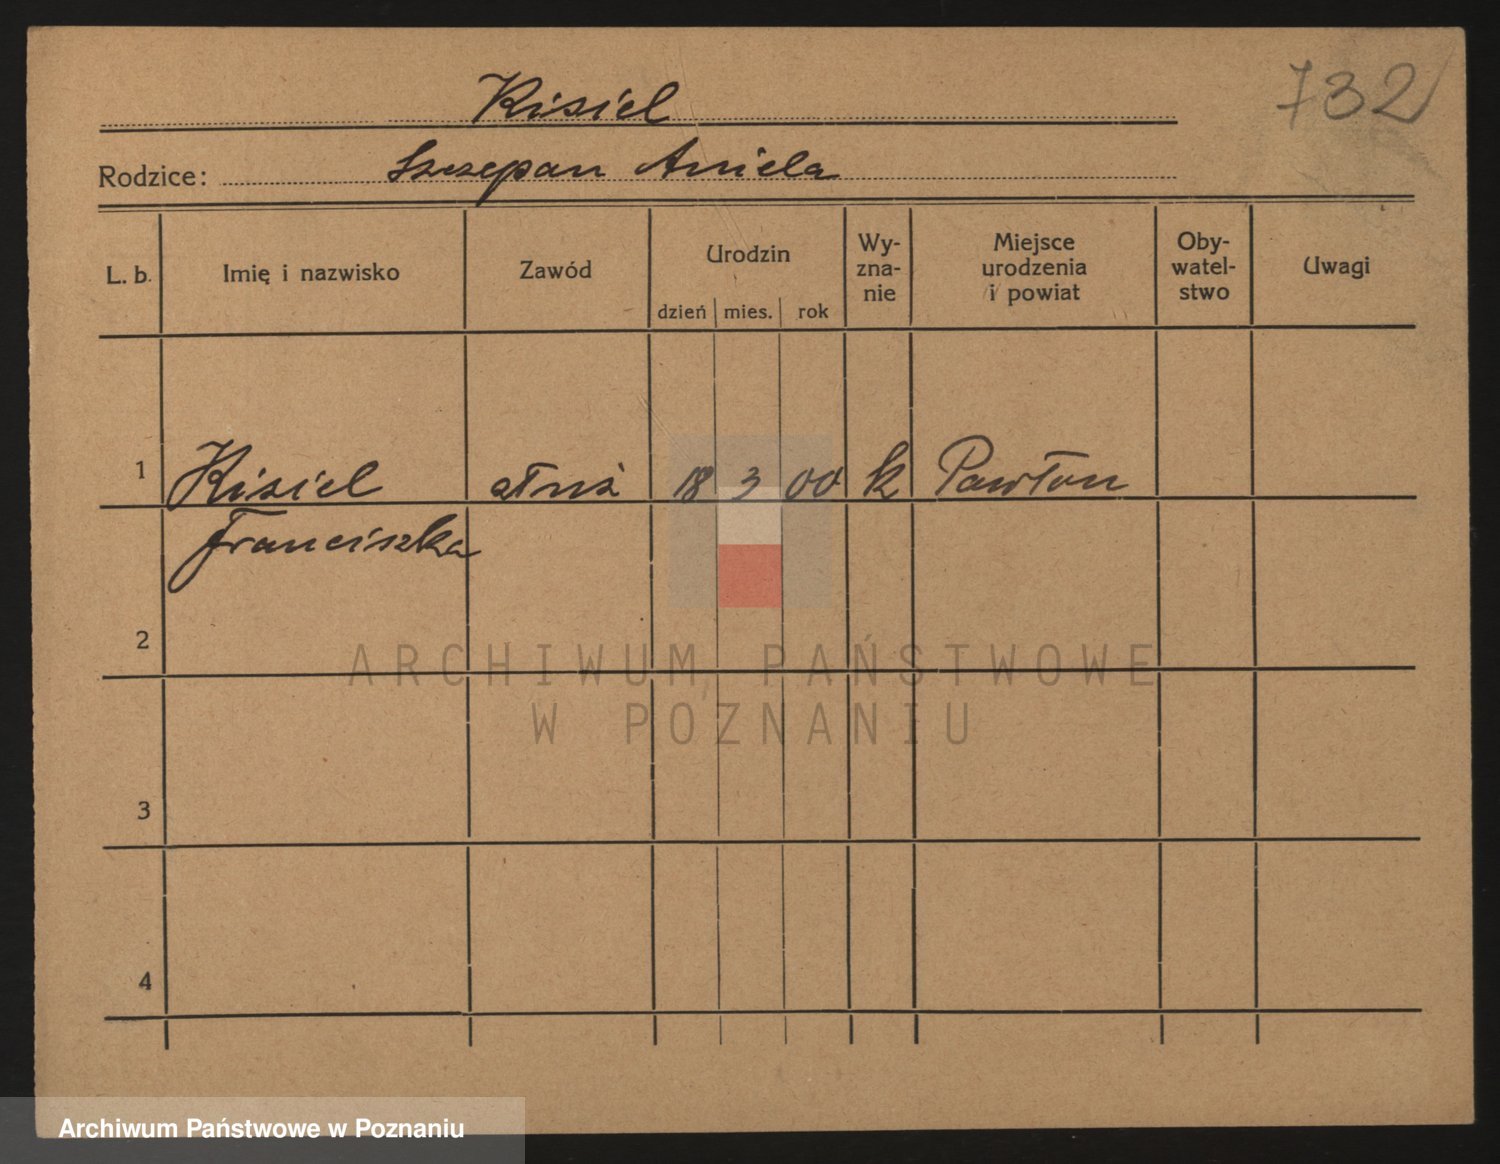 732
Kisiel
Rodzice: Szczepan Aniela
L. b. Imię i nazwisko Zawód Urodzin dzień mies. rok Wy-zna-nie Miejsce urodzenia i powiat Oby-watel-stwo Uwagi
1 Kisiel 18 3 00 k
Franciszka
2
ARCHIWUM PAŃSTWOWE
W POZNANIU
3
4
Archiwum Państwowe w Poznaniu